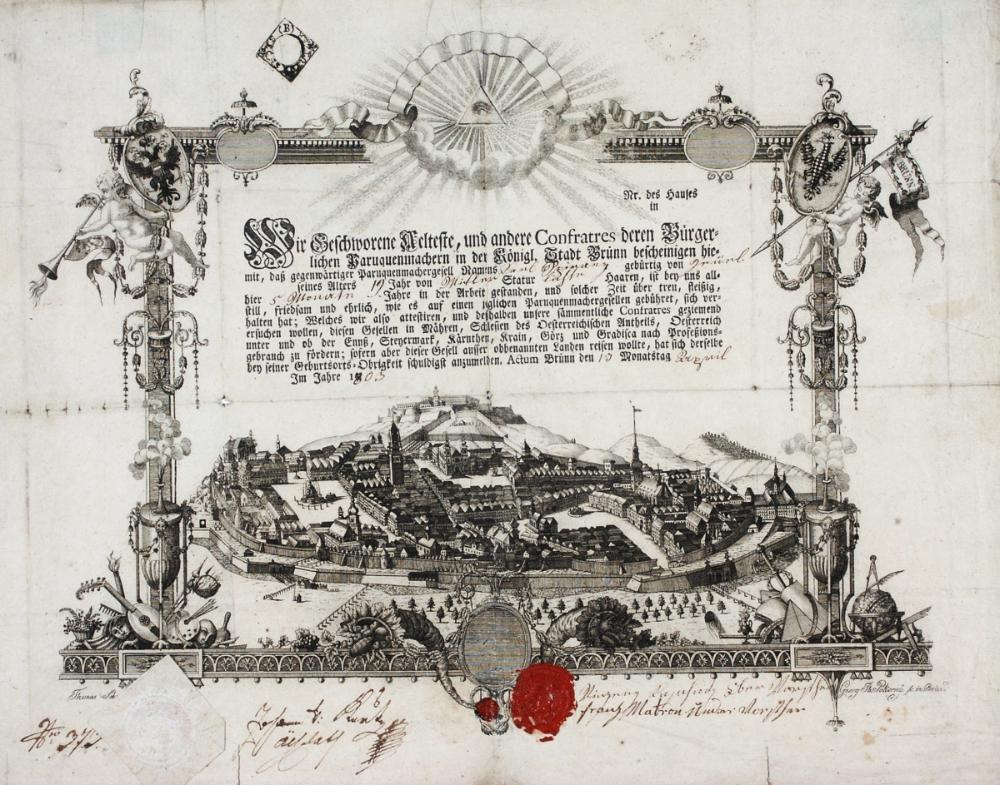 Nr. des Hauses
in
Wir Geschworene Aelteste, und andere Confratres deren Bürger-
lichen Paruquenmachern in der Königl. Stadt Brünn bescheinigen hie-
mit, daß gegenwärtiger Paruquenmachergesell Namens gebürtig von
seines Alters 19 Jahr von Mitler Statur Haaren, ist bey uns all-
hier 5 Monate Jahre in der Arbeit gestanden, und solcher Zeit über treu, fleißig,
still, friedsam und ehrlich, wie es auf einen jglichen Paruquenmachergesellen gebühret, sich ver-
halten hat; Welches wir also attestiren, und deßhalben unsere sämmentliche Confratres geziemend
ersuchen wollen, diesen Gesellen in Mähren, Schlesien des Oesterreichischen Antheils, Oesterreich
unter und ob der Ennß, Steyermark, Kärnthen, Krain, Görz und Gradisca nach Profeßions-
gebrauch zu fördern; sofern aber dieser Gesell ausser obbenannten Landen reisen wollte, hat sich derselbe
bey seiner Geburtsorts-Obrigkeit schuldigst anzumelden. Actum Brünn den 13 Monatstag
Im Jahre 1803
Johann
Franz Matron